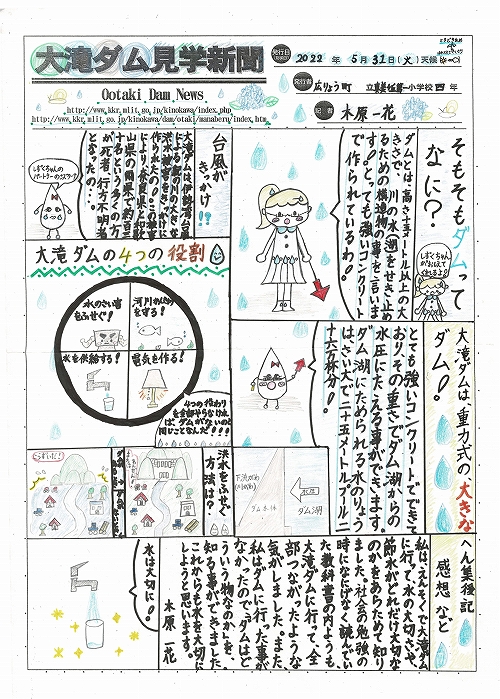 大滝ダム見学新聞
Ootaki Dam News
http://www.kkr.mlit.go.jp/kinokawa/index.php
http://www.kkr.mlit.go.jp/kinokawa/dam/otaki/manaberu/index.htm
発行日
2022 年 5 月 31 日 (火) 天候
発行者
広りょう町 立真美ヶ丘第一小学校 四 年
記者 木原 一花
そもそもダムって
なに？
しずくちゃん
がおしえて
くれるよ♪
ダムとは、高さ十五メートル以上の大
きさで、川の水や湖をせき止め
るための構造物の事を言いま
す！とっても強いコンクリート
で作られているわ！
台風が
きっかけ!!
大滝ダムは、伊勢湾台風
による紀の川の大きな
洪水被害をきっかけに
により、奈良県と和歌
山県の両県で約三
十名という多くの方
が死者、行方不明者
となった…。
しずくちゃんの
パートナーの
大滝ダムの4つの役割
水のさい害
をふせぐ！
河川かんきょう
を守る！
水を供給する！
電気を作る！
4つの役わり
を全部そうなければ、
ダムがないのと
同じことなんだ!!!
大滝ダムは重力式の大きな
ダム！
とても強いコンクリートでできて
おり、その重さでダム湖からの
水圧にたえる事ができます。
ダム湖にためられる水のりょう
は、さい大で二十五メートルプール二
十六万杯分！
洪水をふせぐ
方法は？
下流がわ
ダム本体
水圧
ダム湖
へん集後記
感想など
私は、えんそくで大滝ダム
に行って、水の大切さや、
節水がどれだけ大切な
のかをあらためて知り
ました。社会の勉強の
時になにげなく読んでい
た教科書の内ようも
大滝ダムに行って、全
部つながったような
気がしました。また、
私はダムに行った事が
なかったので、「ダムはど
ういう物なのか」を、
知る事ができました。
これからも水を大切に
しようと思います。
木原 一花
水は大切に！